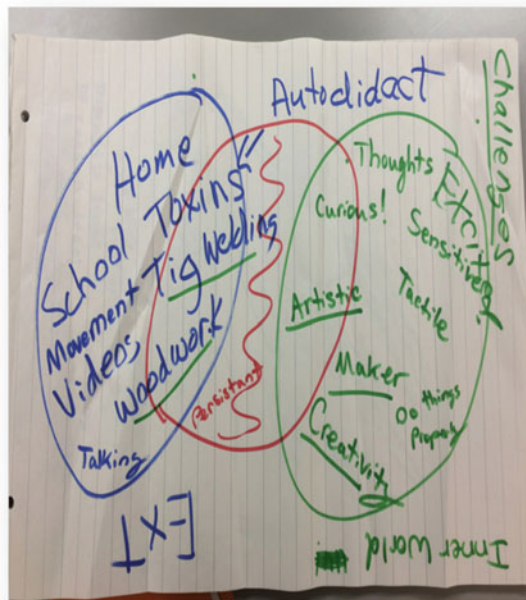 Challenges
Autodidact
Home
School Toxins
Movement Tig Welding
Videos,
Woodwork
Talking
Persistant
Thoughts
Excited!
Curious!
Sensitive
Tactile
Artistic
Maker
Do things
Properly
Creativity
EXT
Inner World